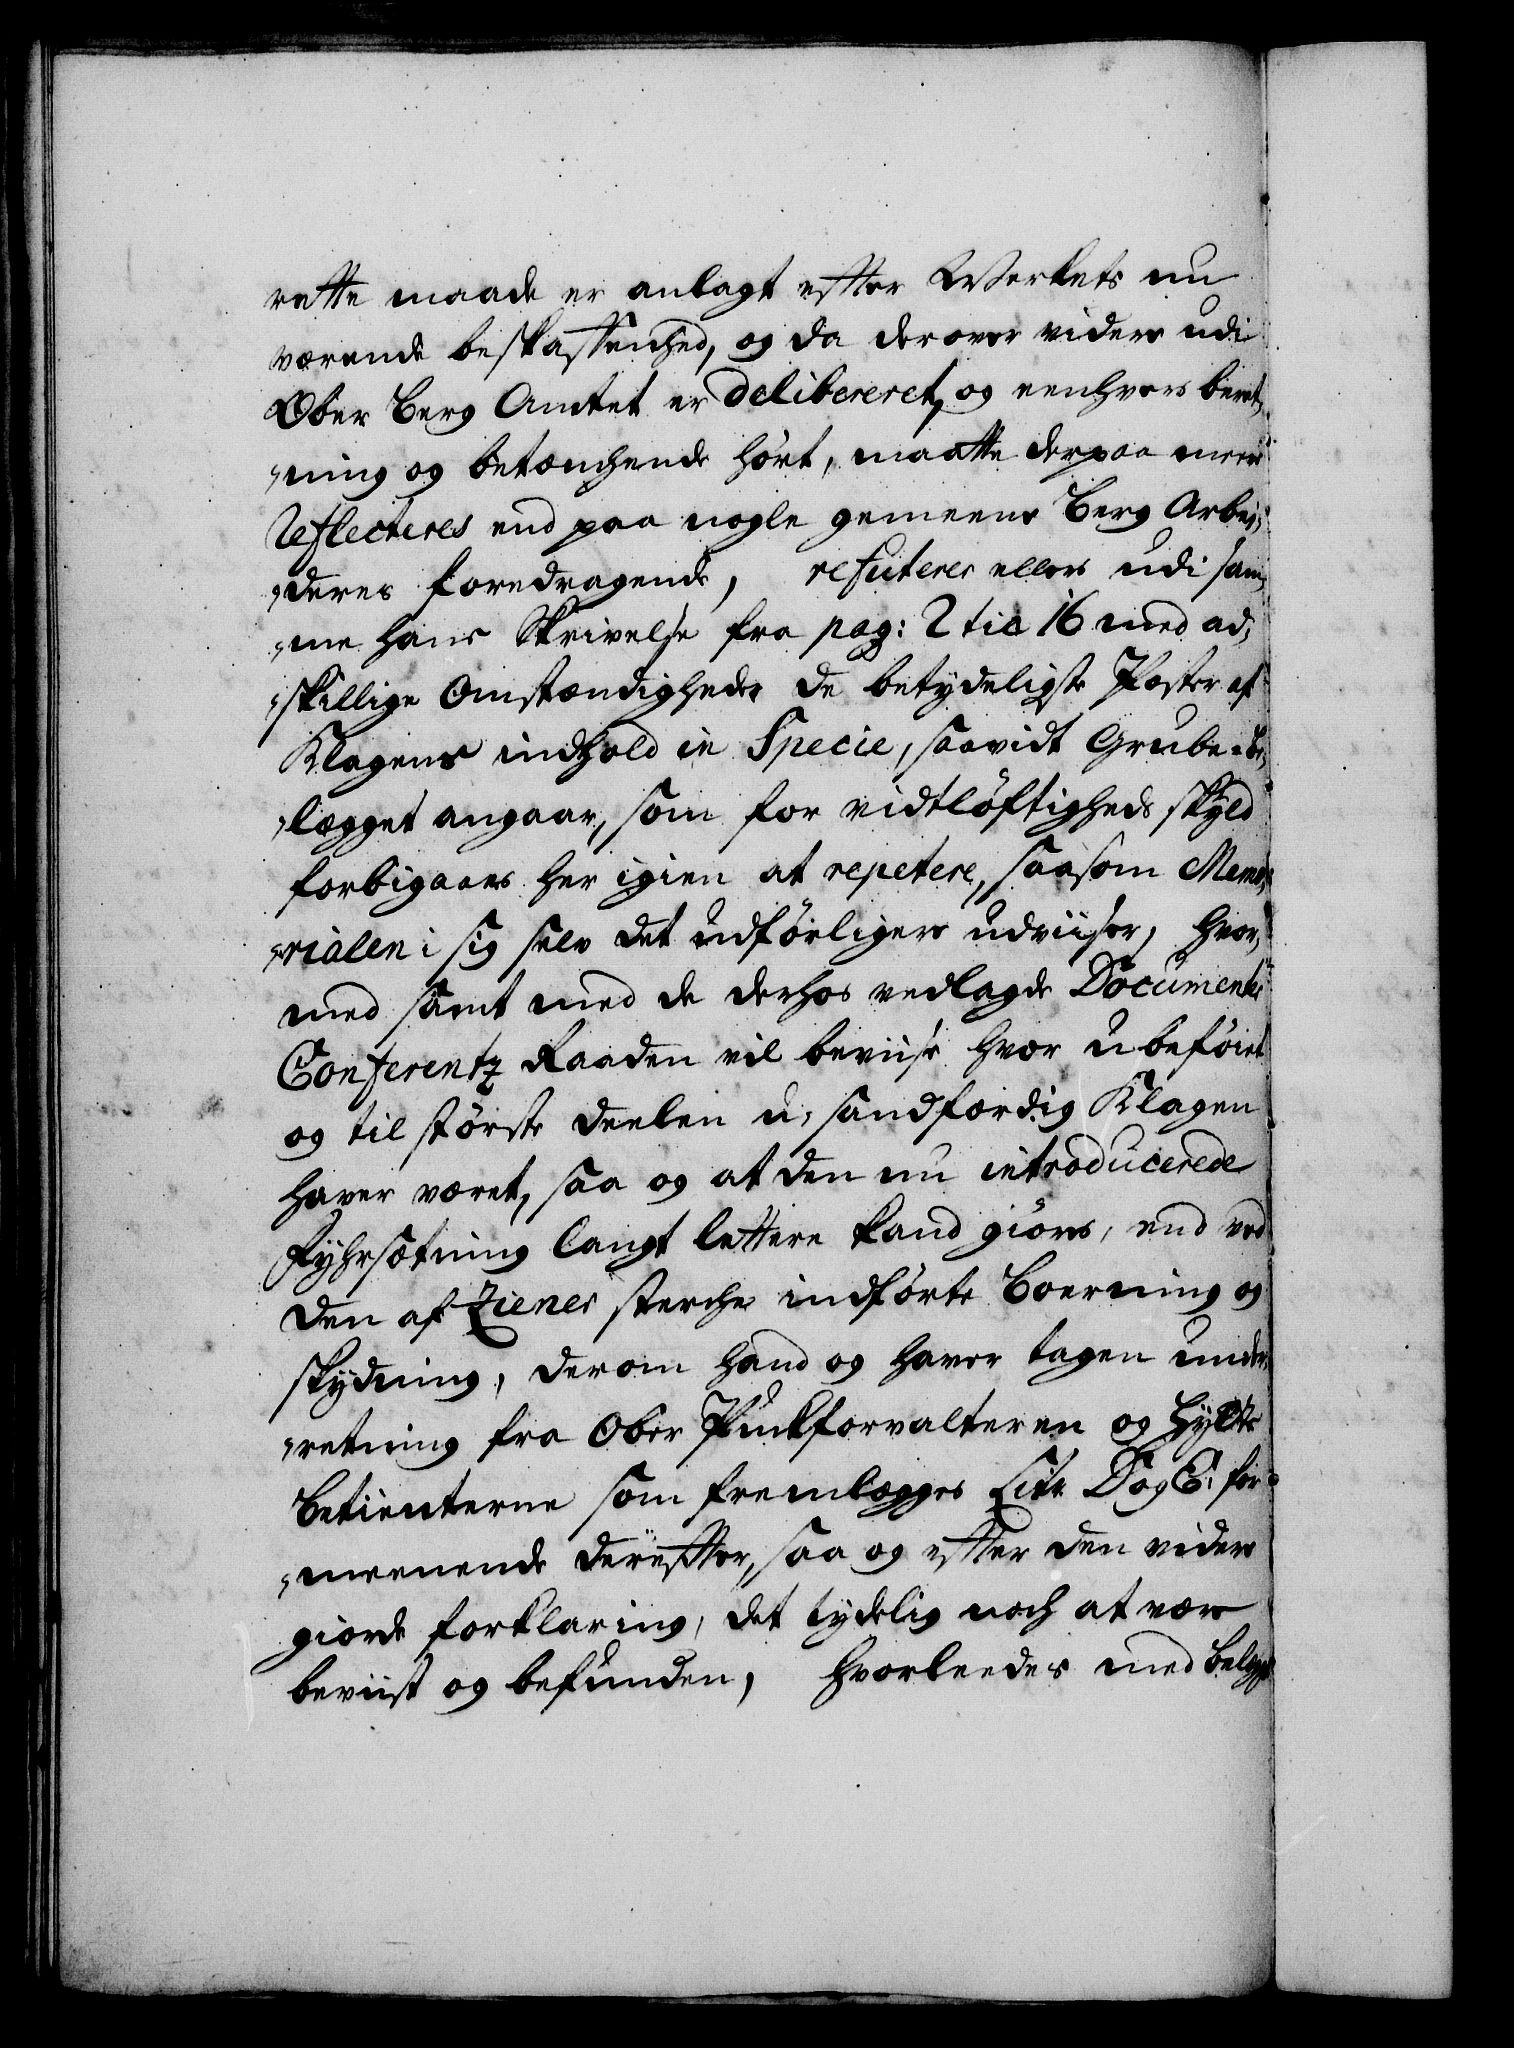 rette maade er anlagt efter Werkets nu
værende beskaffenhed, og da derover videre udi
Ober Berg Amtet er delibereret, og eenhvers beret,
,,ning og betænchende hört, maatte derpaa meer
reflecteres end paa nogle gemeene Berg Arbei,
,,deres foredragende, refuterer ellers udi sam,
,,me hans Skrivelse fra pag: 2 til 16 med ad,
,,skillige Omstændigheder de betydeligste Poster af
Klagens indhold in Specie, saavidt Grube-be,
,,lægget angaar, som for vidtlöftigheds skyld
forbigaaes her igien at repetere, saasom Memo,
,,rialen i sig selv det udförligere udviiser, hvor,
med samt med de derhos vedlagde Documenter
Conferentz Raaden vil beviise hvor ubeföiet
og til störste deelen u,sandfærdig Klagen
haver været, saa og at den nu introducerede
Fyhrsætning langt lettere kand giöres, end ved
den af Zieners sterche indförte Boerning og
skydning, derom hand og haver tagen under,
,,retning fra Ober Pukforvalteren og Hytte
betienterne som fremlægges Litr D og E: for
,,meenende derefter, saa og efter den videre
giorde forklaring, det tydelig noch at være
beviist og befunden, hvorleedes med belægs